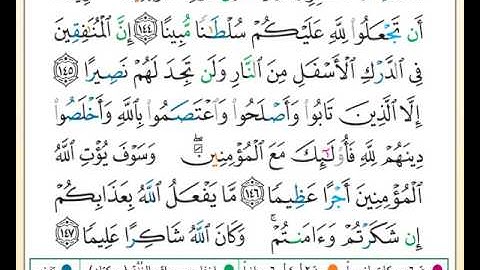 أَن تَجْعَلُوا۟ لِلَّهِ عَلَيْكُمْ سُلْطَٰنًا مُّبِينًا ﴿١٤٤﴾ إِنَّ الْمُنَٰفِقِينَ
فِى الدَّرْكِ الْأَسْفَلِ مِنَ النَّارِ وَلَن تَجِدَ لَهُمْ نَصِيرًا ﴿١٤٥﴾
إِلَّا الَّذِينَ تَابُوا۟ وَأَصْلَحُوا۟ وَاعْتَصَمُوا۟ بِاللَّهِ وَأَخْلَصُوا۟
دِينَهُمْ لِلَّهِ فَأُو۟لَٰٓئِكَ مَعَ الْمُؤْمِنِينَ ۖ وَسَوْفَ يُؤْتِ اللَّهُ
الْمُؤْمِنِينَ أَجْرًا عَظِيمًا ﴿١٤٦﴾ مَّا يَفْعَلُ اللَّهُ بِعَذَابِكُمْ
إِن شَكَرْتُمْ وَءَامَنتُمْ ۚ وَكَانَ اللَّهُ شَاكِرًا عَلِيمًا ﴿١٤٧﴾